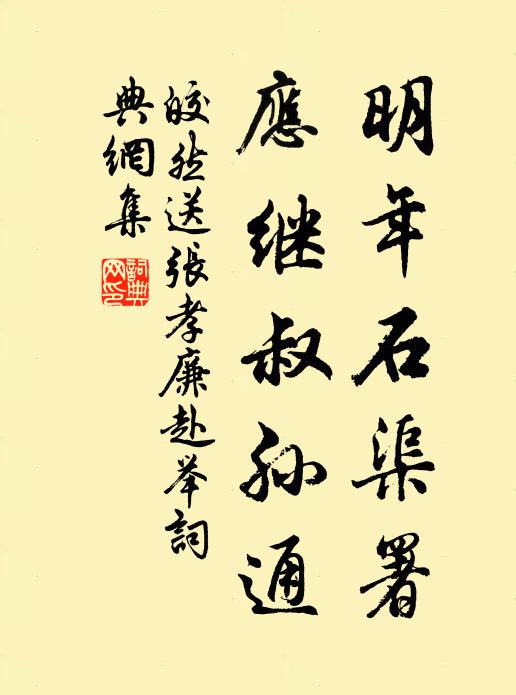 明年石渠署
應継叔孙通
皎然送張孝廉赴举詞
典網集
詞典
网印